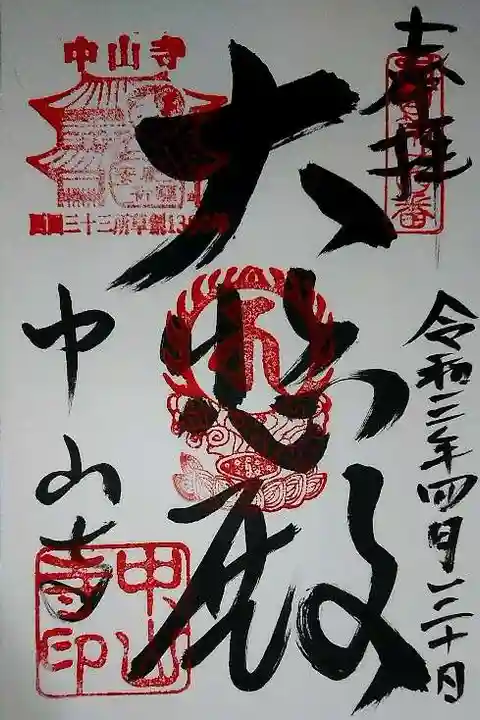 奉拝
大悲殿
令和三年四月三十日
中山寺
中山寺
安産祈願
西国三十三所草創1300年
中山寺印